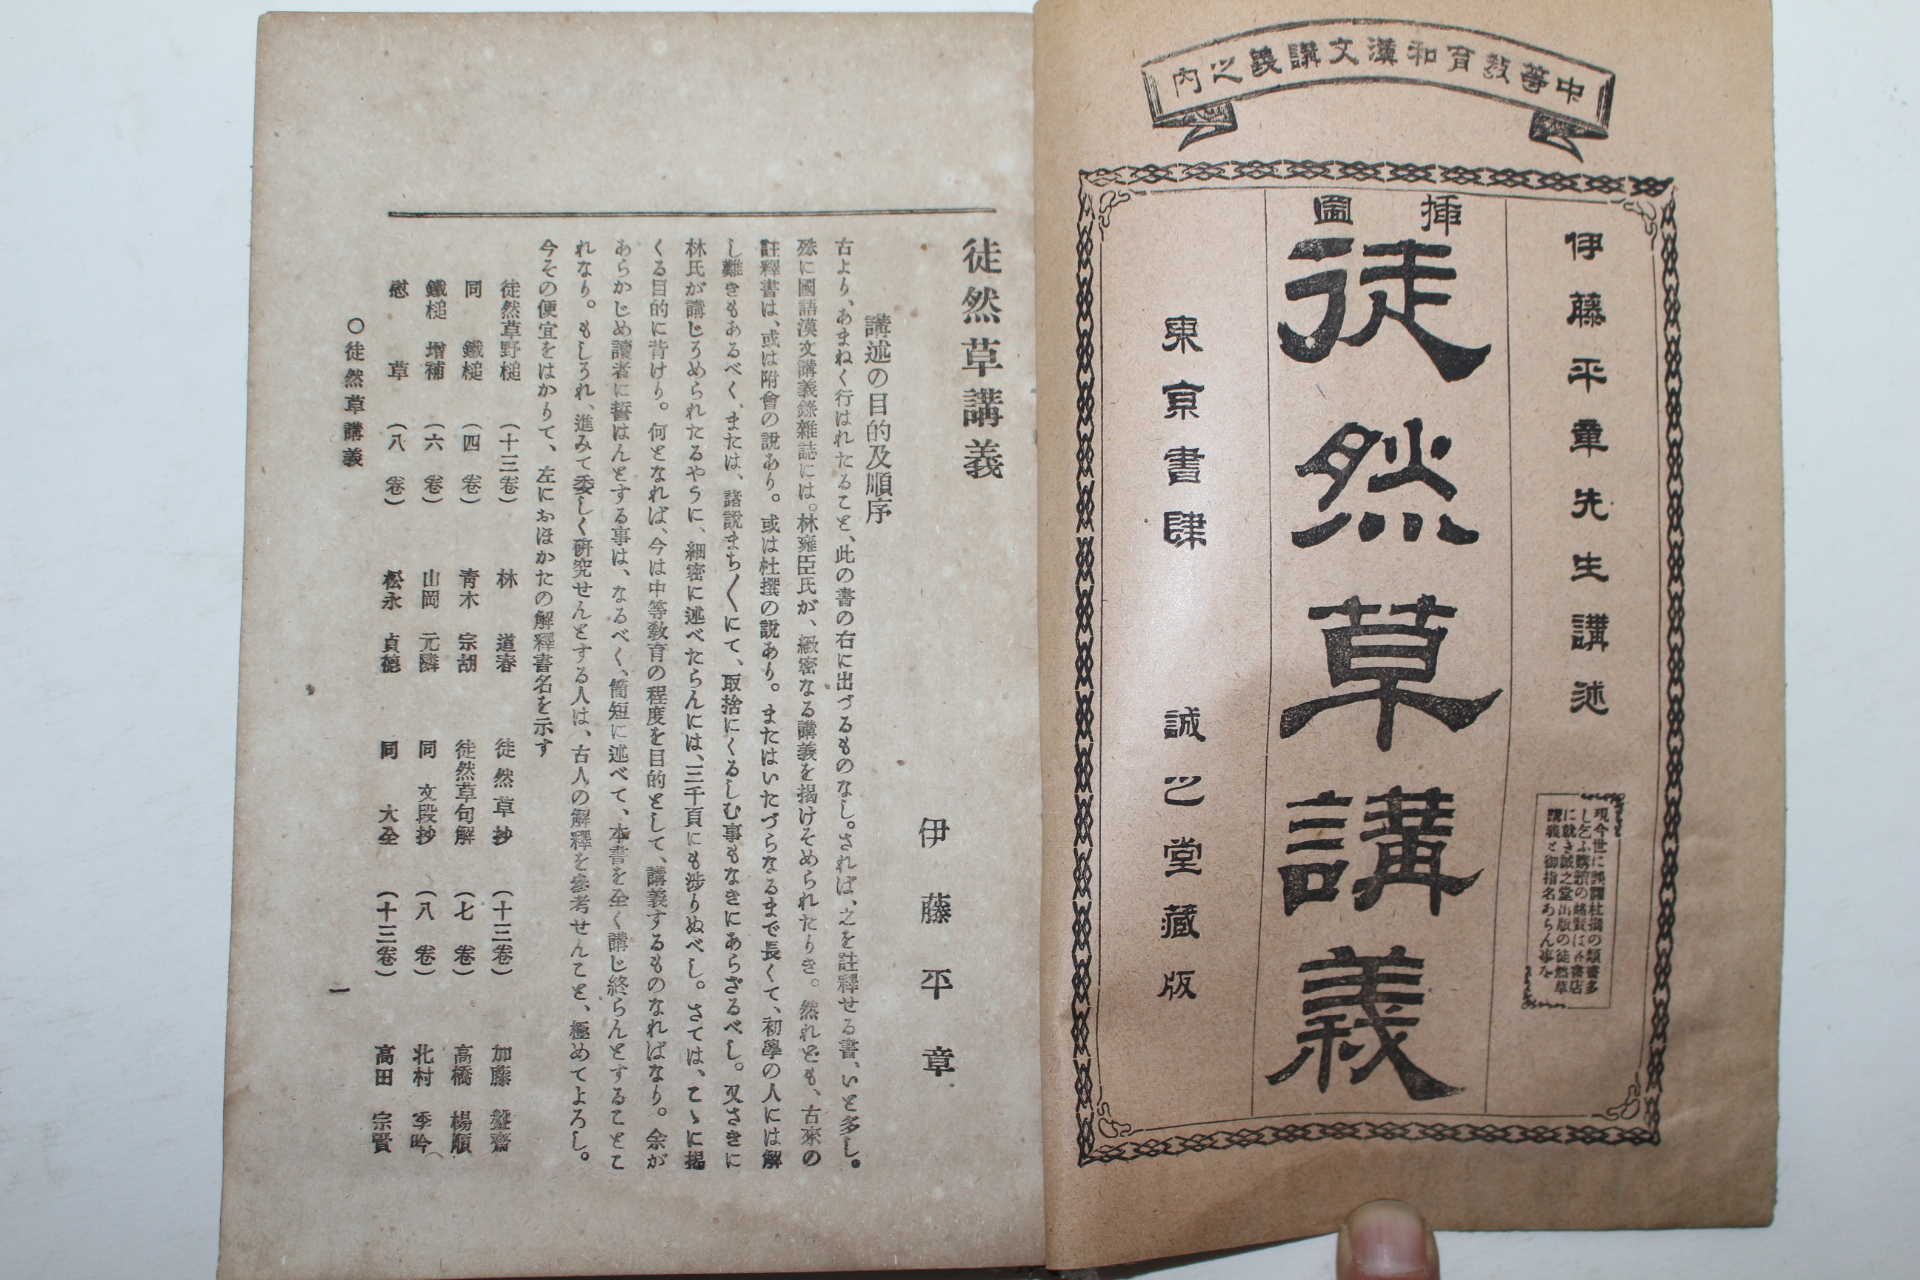 中等教育和漢文講義之内
伊藤平章先生講述
現今世に誤謬杜撰の類書多
し乞ふ購讀の諸賢は各書店
に就き誠之堂出版の徒然草
講義と御指名あらん事を
挿圖
徒然草講義
東京書肆 誠之堂藏版
徒然草講義
伊藤平章
講述の目的及順序
古より、あまねく行はれたること、此の書の右に出づるものなし。されば、之を註釋せる書、いと多し。
殊に國語漢文講義錄雜誌には。林甕臣氏が、緻密なる講義を揭けそめられたりき。然れども、古來の
註釋書は、或は附會の說あり。或は杜撰の說あり。またはいたづらなるまで長くて、初學の人には解
し難きもあるべく、または、諸說まち〱にて、取捨にくるしむ事もなきにあらざるべし。又さきに
林氏が講じろめられたるやうに、細密に述べたらんには、三千頁にも涉りぬべし。さては、こゝに揭
くる目的に背けり。何となれば、今は中等敎育の程度を目的として、講義するものなればなり。余が
あらかじめ讀者に誓はんとする事は、なるべく、簡短に述べて、本書を全く講じ終らんとすることこ
れなり。もしろれ、進みて委しく研究せんとする人は、古人の解釋を參考せんこと、極めてよろし。
今その便宜をはかりて、左におほかたの解釋書名を示す
徒然草野槌 (十三卷) 林 道春 徒然草抄 (十三卷) 加藤 盤齋
同 鐵槌 (四 卷) 靑木 宗胡 徒然草句解 (七 卷) 高橋 楊順
鐵槌 增補 (六 卷) 山岡 元隣 同 文段抄 (八 卷) 北村 季吟
慰 草 (八 卷) 松永 貞德 同 大全 (十三卷) 高田 宗賢
○徒然草講義
一